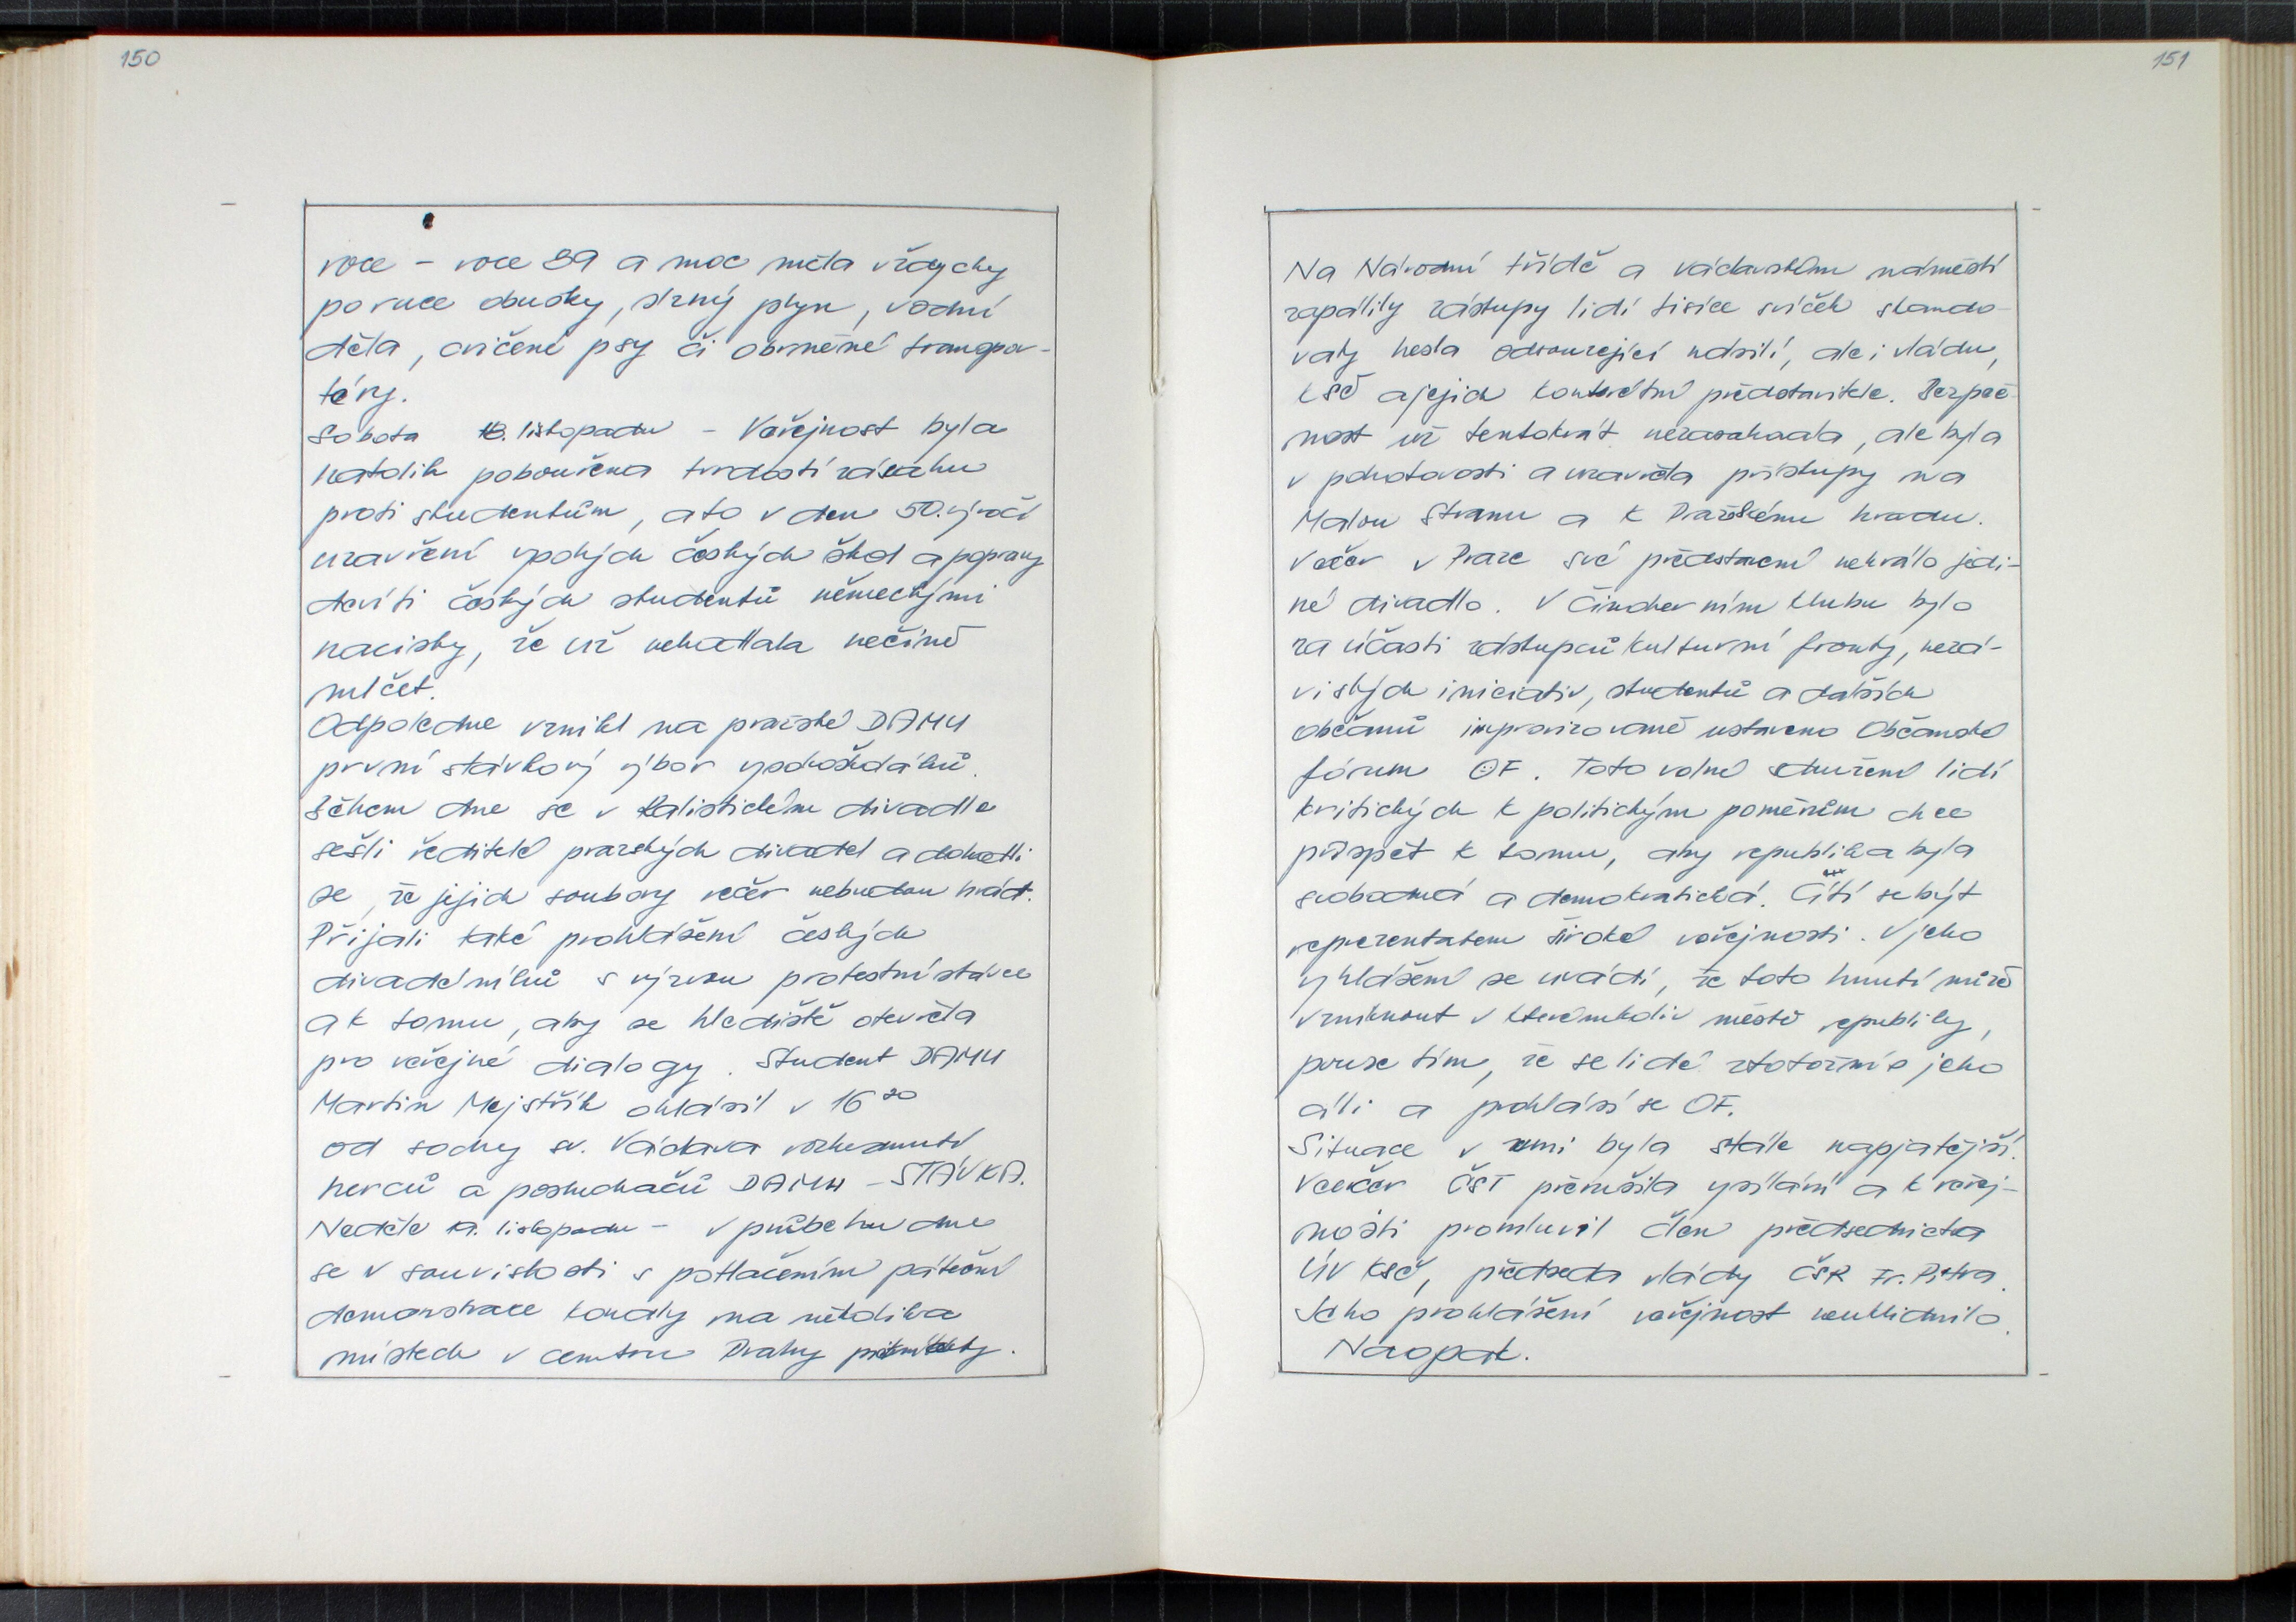 150
roce - roce 89 a moc měla vždycky
poruce obušky, slzný plyn, vodní
děla, cvičené psy či obrněné transpor-
téry.
Sobota 18. listopadu - Veřejnost byla
natolik pobouřena tvrdostí zásahu
proti studentům, a to v den 50. výročí
uzavření vysokých českých škol a popravy
devíti českých studentů německými
nacisty, že už nehodlala nečinně
mlčet.
Odpoledne vznikl na pražské DAMU
první stávkový výbor vysokoškoláků.
Během dne se v Realistickém divadle
sešli ředitelé pražských divadel a dohodli
se, že jejich soubory večer nebudou hrát.
Přijali také prohlášení českých
divadelníků s výzvou protestní stávce
a k tomu, aby se hlediště otevřela
pro veřejné dialogy. Student DAMU
Martin Mejstřík ohlásil v 16 20
od sochy sv. Václava rozhodnutí
herců a posluchačů DAMU - STÁVKA.
Neděle 19. listopadu - v průběhu dne
se v souvislosti s potlačením páteční
demonstrace konaly na několika
místech v centru Prahy
151
Na Národní třídě a václavském náměstí
zapálily zástupy lidí tisíce svíček skando-
valy hesla odsouzející násilí, ale i vládu,
KSČ a jejich konkrétní představitele. Bezpeč-
nost už tentokrát nezasahovala, ale byla
v pohotovosti a uzavřela přístupy na
Malou Stranu a k Pražskému hradu.
Večer v Praze své představení nehrálo jedi-
né divadlo. V Činoherním klubu bylo
za účasti zástupců kulturní fronty, nezá-
vislých iniciativ, studentů a dalších
občanů improvizovaně ustaveno Občanské
fórum OF. Toto volné sdružení lidí
kritických k politickým poměrům chce
přispět k tomu, aby republika byla
svobodná a demokratická. Cítí se být
reprezentatem široké veřejnosti. V jeho
vyhlášení se uvádí, že toto hnutí může
vzniknout v kterémkoliv městě republiky,
pouze tím, že se lidé ztotožní s jeho
cíli a prohlásí se OF.
Situace v zemi byla stále napjatější.
Večer ČST přerušila vysílání a k veřej-
nosti promluvil člen předsednictva
ÚV KSČ, předseda vlády ČSR Fr. Pitra.
Jeho prohlášení veřejnost neuklidnilo.
Naopak.